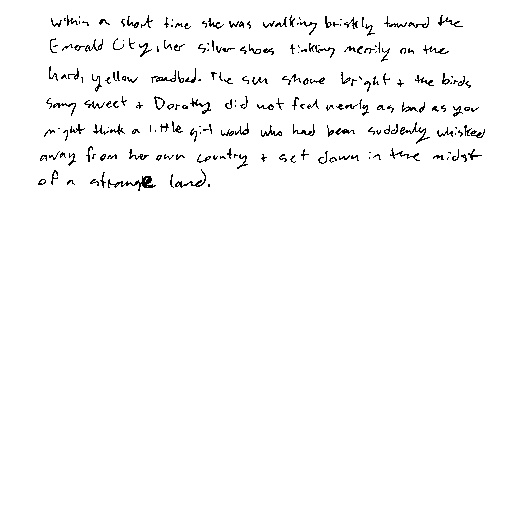 within a short time she was walking briskly toward the
Emerald City, her silver shoes tinkling merrily on the
hard, yellow roadbed. The sun shone bright + the birds
sang sweet + Dorothy did not feel nearly as bad as you
might think a little girl would who had been suddenly whisked
away from her own country + set down in the midst
of a strange land.